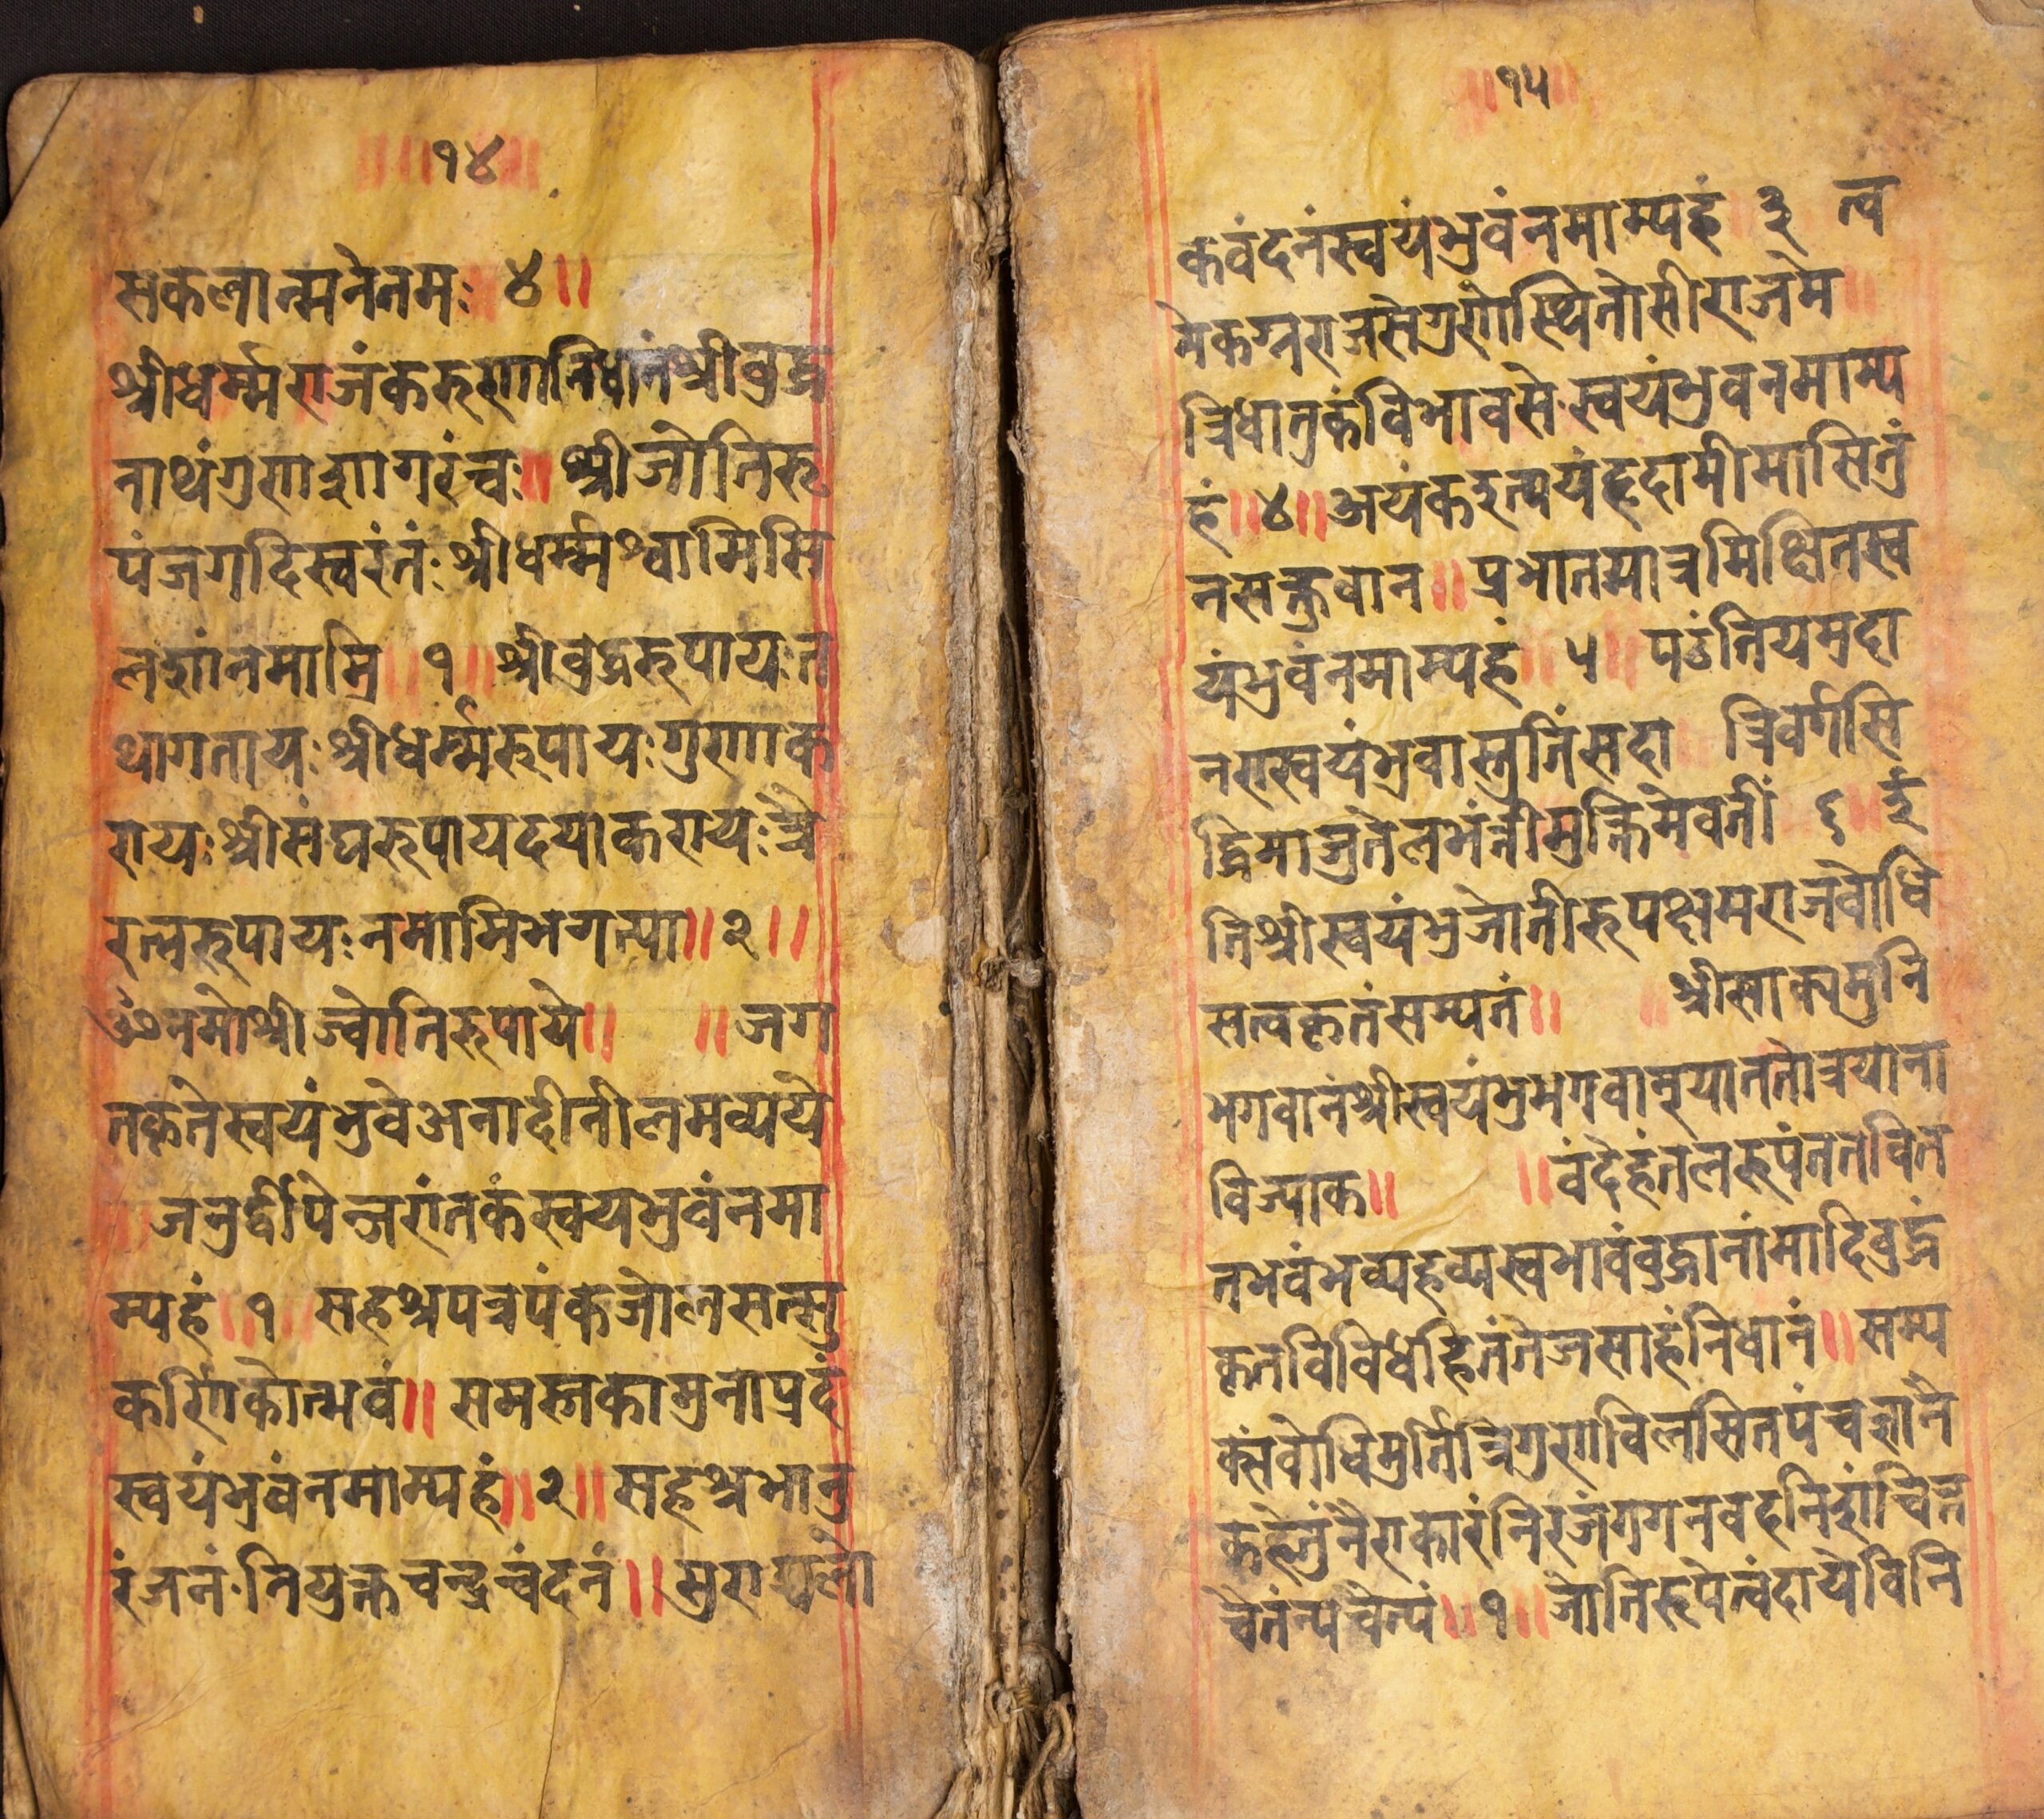 १४
सकलात्मनेनम: ४॥
श्रीधर्म्मराजंकरुणानिधानंश्रीवुद्ध
नाथंगुणाशागरंत्व:॥ श्रीजोतिरू
पंजगदिस्वरंतं:श्रीधर्म्मश्वामिमि
लशांनमामि ॥ १ ॥ श्रीवुद्धरूपाय:त
थागताय:श्रीधर्म्मरूपाय:गुणाक
राय:श्रीसंघरूपायदयाकराय:त्रै
रत्नरूपाय:नमामिभगत्या॥ २ ॥
ॐनमोश्रीज्वोतिरुपाये॥ ॥ जग
तकृतेस्वयंभुवेअनादीनीलमव्यये
जनुर्द्दीपिन्जरांतकंस्वयभुवंनमा
म्यहं ॥ १ सहश्रपत्रपंकजोलसत्सु
कर्णिकोत्भवं॥ समस्तकामनाप्रदं
स्वयंभुवंनमाम्यहं॥ २॥ सहश्रभानु
रंजनं:नियुक्तचन्द्रवंदनं॥ सुरा लो
१५
कवंदनंस्वयंभुवंनमाम्यहं ३ त्व
मेकग्नराजसेगुणोस्थितोसीराजेम॥
त्रिधातुकंविभावसे:स्वयंभुवनमाम्य
हं॥४॥ अयंकइत्ययंहृदामीमासितुं
नसक्तुवान॥ प्रभातमात्रमिक्षितस्व
यंभुवंनमाम्यहं॥ ५॥ पठंतियमुदा
नरास्वयंभुवास्तुतिंसदा त्रिवर्गसि
द्धिमाजुतेलभंन्तीमुक्तिमेवतीं ६॥ ई
तिश्रीस्वयंभुजोतीरूपक्षमराजवोधि
सत्वकृतंसम्पतं॥ ॥ श्रीसाक्यमुनि
भगवानंश्रीस्वयंभुभगवामूयाततोत्रयाना
विज्याक॥ ॥वंदेहंतलरूपंततवित
तभवंभव्यहव्यस्वभावंवुद्धानांमादिवुद्धं
कृतविविधेहितंतेजसाहंनिधानं॥ सम्य
क्संवोधिमुर्तित्रिगुणविलसितपंचज्ञाने
नैराकारंनिरजंगगनवह चित्त
चेतंन्यचेत्यं॥ १॥ जोतिरूपेत्वंदायेविनि